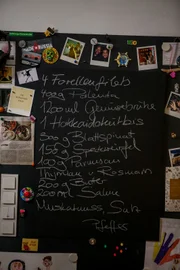 4 Forellenfilets
400g Polenta
1200ml Gemüsebrühe
1 Hokkaidokürbis
500g Blattspinat
150g Speckwürfel
100g Parmesan
Thymian u Rosmarin
200g Butter
200ml Sahne
Muskatnuss, Salz
Pfeffer